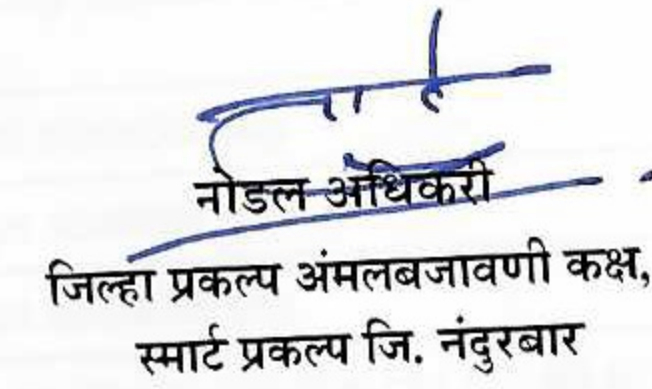 नोडल अधिकरी
जिल्हा प्रकल्प अंमलबजावणी कक्ष,
स्मार्ट प्रकल्प जि. नंदुरबार